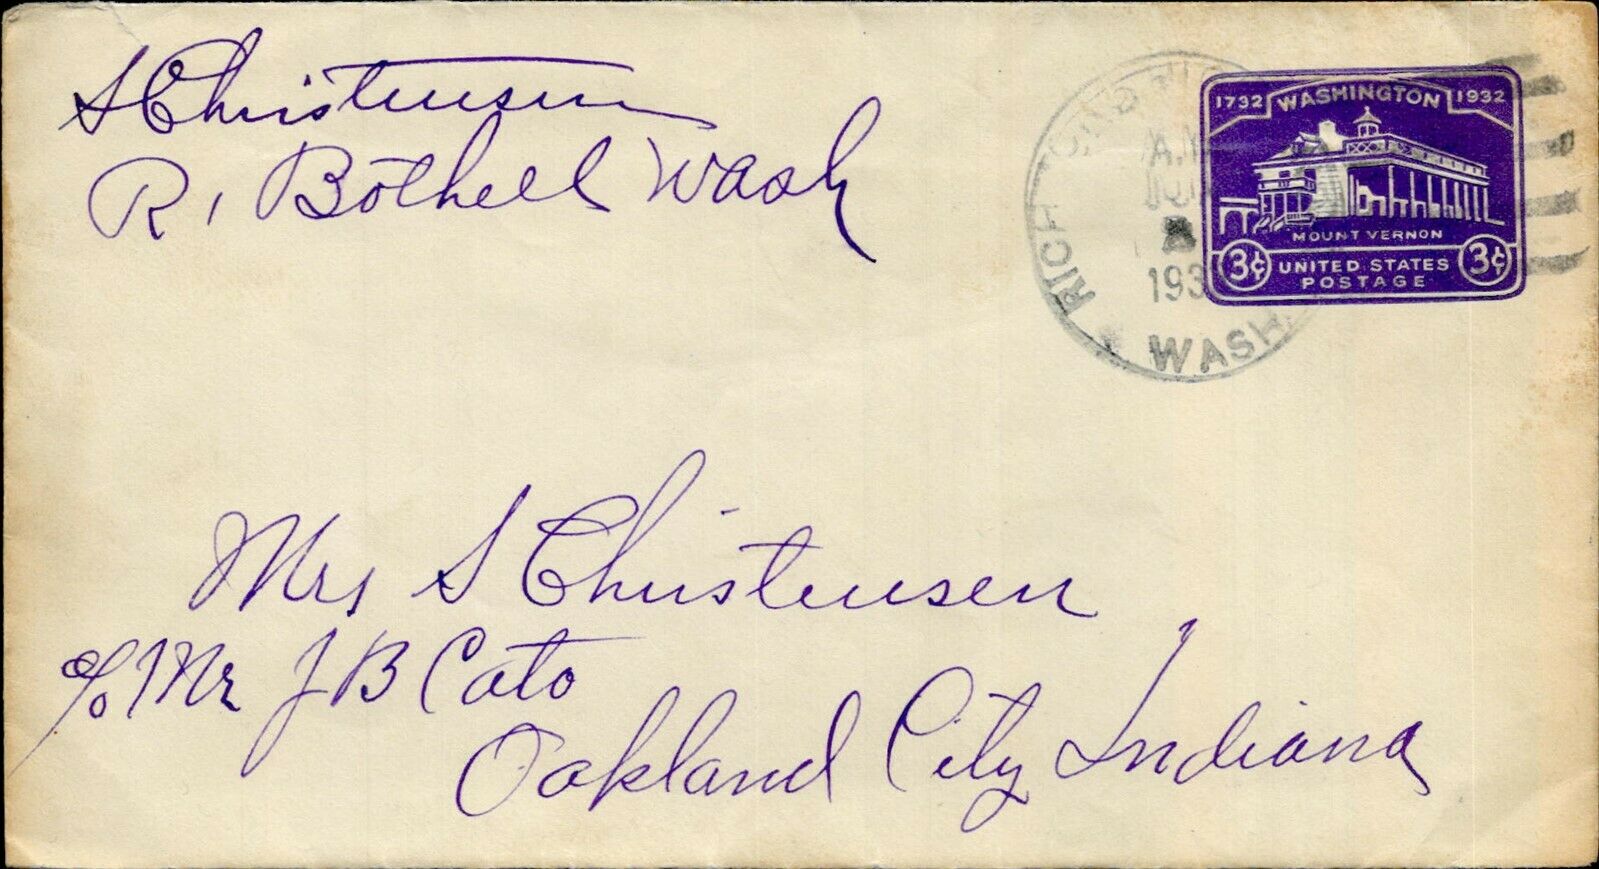 S Christensen
R 1 Bothell Wash
1732 WASHINGTON 1932
MOUNT VERNON
3¢ UNITED STATES 3¢
POSTAGE
A.M.
193
WASH.
Mrs S Christensen
c/o Mr J B Cato
Oakland City Indiana